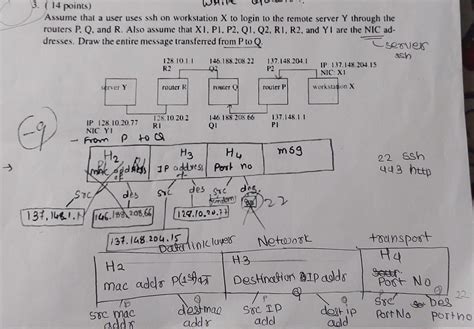 3. (14 points)
Assume that a user uses ssh on workstation X to login to the remote server Y through the
routers P, Q, and R. Also assume that X1, P1, P2, Q1, Q2, R1, R2, and Y1 are the NIC ad-
dresses. Draw the entire message transferred from P to Q.
server
ssh
128.10.1.1
R2
146.188.208.22
Q2
137.148.204.1
P2
IP 137.148.204.15
NIC X1
server Y
router R
router Q
router P
workstation X
IP 128.10.20.77
NIC Y1
128.10.20.2
R1
146.188.208.66
Q1
137.148.1.1
P1
-9
- From P to Q
H2
mac address of
H3
IP address of
H4
Port no
msg
22 ssh
443 http
src
des
src
des
src
des
random
22
137.148.1.1
146.188.208.66
128.10.20.77
137.148.204.15
Datalink layer
Network
transport
H2
mac addr
H3
Destination IP addr
H4
Port No
src mac
addr
dest mac
addr
src IP
add
dest ip
add
src
Port No
des
Port No
22